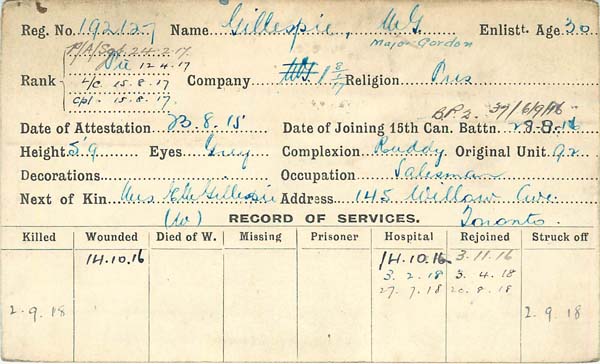 Reg. No. 192127 Name Gillespie, M.G. Enlistt. Age 30
Major Gordon
P/A/Sgt 24.2.17
Rank Pte 12.4.17 Company 1 8/17 Religion Pres
L/c 15.8.17
Cpl. 15.8.17
B.P.2. 37/6/9/16
Date of Attestation 23.8.15 Date of Joining 15th Can. Battn. 28.8.16
Height 5'9 Eyes Grey Complexion Ruddy Original Unit 92
Decorations Occupation Salesman
Next of Kin Mrs Gillespie Address 145 Willow Ave.
(W) RECORD OF SERVICES. Toronto.
Killed Wounded Died of W. Missing Prisoner Hospital Rejoined Struck off
14.10.16 14.10.16 3.11.16
3.2.18 3.4.18
2.9.18 27.7.18 20.8.18 2.9.18